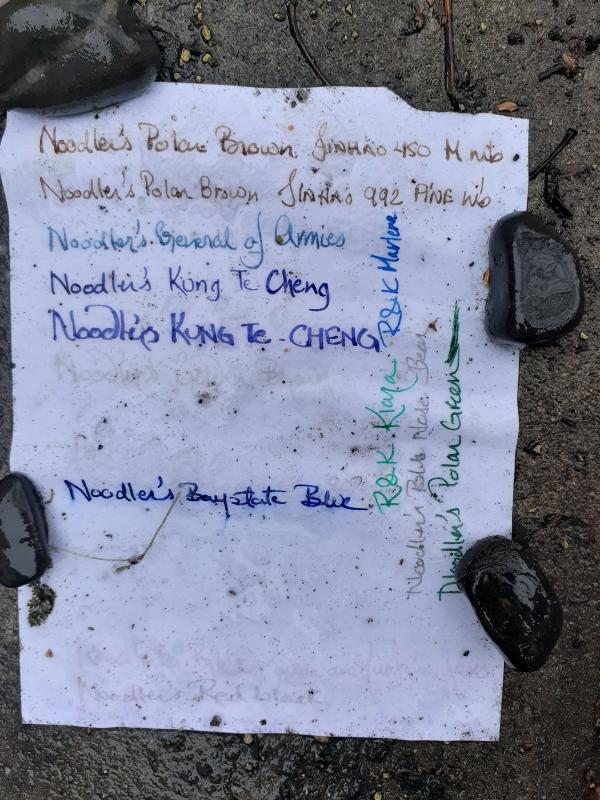 Noodler's Polar Brown JINHAO 450 M nib
Noodler's Polar Brown JINHAO 992 FINE Nib
Noodler's General of Armies
Noodler's Kung Te Cheng
Noodler's KUNG TE-CHENG
Noodler's
Noodler's Baystate Blue
Noodler's Red black
R&K Klara R&K Marlene
Noodler's Blue Nose Bear
Noodler's Polar Green